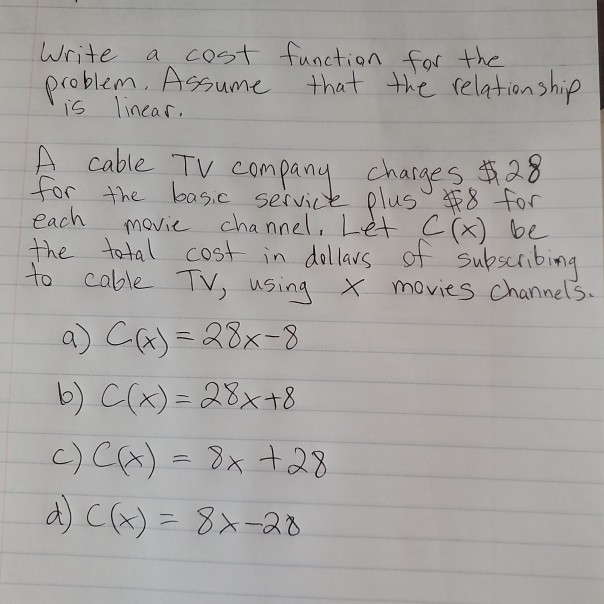 Write a cost function for the
problem. Assume that the relationship
is linear.
A cable TV company charges $28
for the basic service plus $8 for
each movie channel. Let C(x) be
the total cost in dollars of subscribing
to cable TV, using x movies channels.
a) C(x) = 28x-8
b) C(x) = 28x+8
c) C(x) = 8x +28
d) C(x) = 8x-28